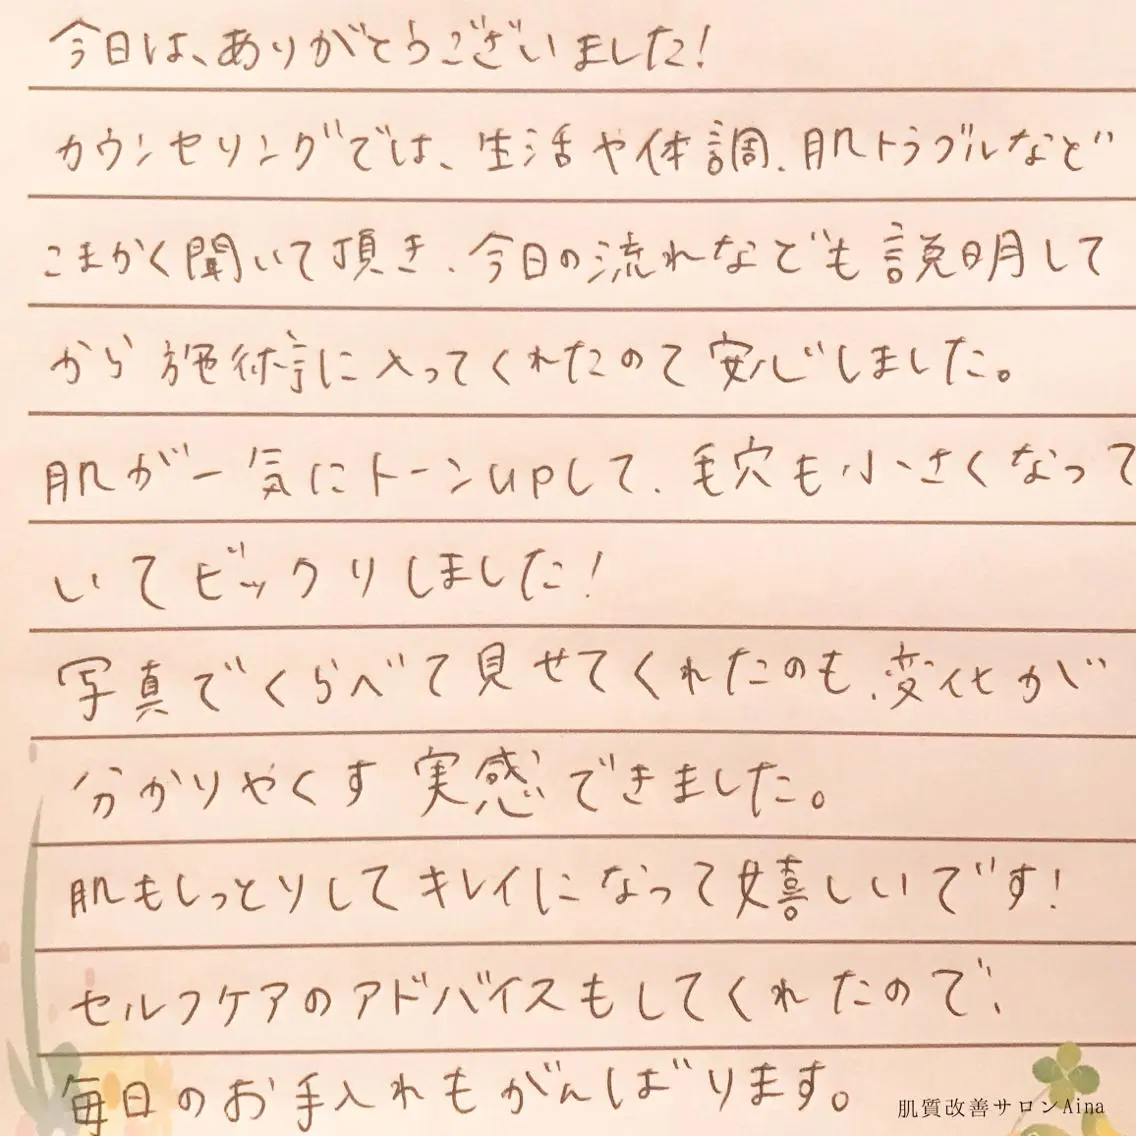 今日は、ありがとうございました!
カウンセリングでは、生活や体調、肌トラブルなど
こまかく聞いて頂き、今日の流れなども説明して
から施術に入ってくれたので安心しました。
肌が一気にトーンupして、毛穴も小さくなって
いてビックリしました!
写真でくらべて見せてくれたのも、変化が
分かりやすく実感できました。
肌もしっとりしてキレイになって嬉しいです!
セルフケアのアドバイスもしてくれたので、
毎日のお手入れもがんばります。
肌質改善サロンAina